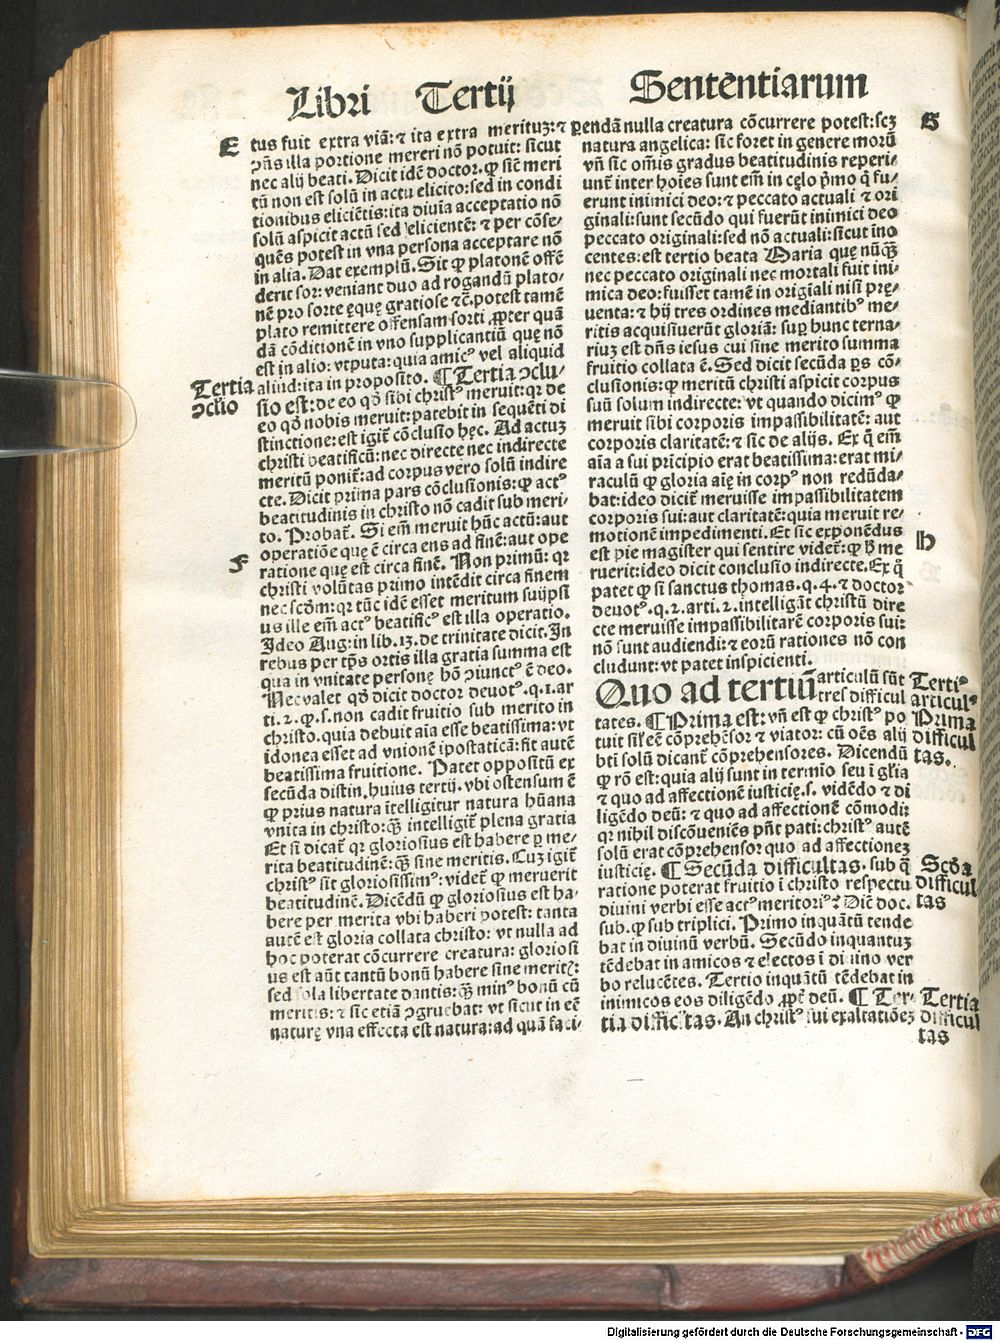 Libri Tertij Sententiarum
E
tus fuit extra viã: ⁊ ita extra merituꝫ: ⁊
ↄñs illa portione mereri nõ potuit: sicut
nec alij beati. Dicit idẽ doctor. ꝙ sic̃ meri
tũ non est solũ in actu elicito: sed in condi
tionibus eliciẽtis: ita diuia acceptatio nõ
solũ aspicit actũ sed elicientẽ: ⁊ per cõse-
quẽs potest in vna persona acceptare nõ
in alia. Dat exemplũ. Sit ꝙ platonẽ offẽ
derit sor: veniant duo ad rogandũ plato-
nẽ pro sorte ęquę gratiose ⁊c̃. potest tamẽ
plato remittere offensam sorti ꝓpter quã
dã cõditionẽ in vno supplicantiũ quę nõ
est in alio: vtputa: quia amicꝰ vel aliquid
aliud: ita in proposito. ¶ Tertia ↄclu-
Tertia
ↄclio
sio est: de eo qđ sibi christꝰ meruit: qꝛ de
eo qđ nobis meruit: patebit in sequẽti di
stinctione: est igit̃ cõclusio hęc. Ad actuꝫ
christi beatificũ: nec directe nec indirecte
meritũ ponit̃: ad corpus vero solũ indire
cte. Dicit prima pars cõclusionis: ꝙ actꝰ
beatitudinis in christo nõ cadit sub meri-
to. Probat̃. Si em̃ meruit hũc actũ: aut
operatiõe quę ẽ circa ens ad finẽ: aut ope
F
ratione quę est circa finẽ. Non primũ: qꝛ
christi volũtas primo intẽdit circa finem
nec scđm: qꝛ tũc idẽ esset meritum suijpsi
us ille em̃ actꝰ beatificꝰ est illa operatio.
Ideo Aug: in lib. 13. de trinitate dicit. In
rebus per tp̃s ortis illa gratia summa est
qua in vnitate personę hõ ↄiunctꝰ ẽ deo.
Nec valet qđ dicit doctor deuotꝰ. q. 1. ar
ti. 2. ꝙ. s. non cadit fruitio sub merito in
christo. quia debuit aĩa esse beatissima: vt
idonea esset ad vnionẽ ipostaticã: fit autẽ
beatissima fruitione. Patet oppositũ ex
secũda distin. huius tertij. vbi ostensum ẽ
ꝙ prius natura ĩtelligitur natura hũana
vnita in christo: qꝫ̃ intelligit̃ plena gratia
Et si dicat̃ qꝛ gloriosius est habere ꝑ me-
rita beatitudinẽ: qꝫ̃ sine meritis. Cuꝫ igit̃
christꝰ sit gloriosissimꝰ: videt̃ ꝙ meruerit
beatitudinẽ. Dicẽdũ ꝙ gloriosius est ha-
bere per merita vbi haberi potest: tanta
autẽ est gloria collata christo: vt nulla ad
hoc poterat cõcurrere creatura: gloriosi
us est aũt tantũ bonũ habere sine meritꝭ:
sed sola libertate dantis: qꝫ̃ minꝰ bonũ cũ
meritis: ⁊ sic etiã ↄgruebat: vt sicut in eẽ
naturę vna effecta est natura: ad quã faci-
endã nulla creatura cõcurrere potest: scꝫ
G
natura angelica: sic foret in genere morũ
vñ sic om̃is gradus beatitudinis reperi-
unt̃ inter hoĩes sunt em̃ in cęlo p̃mo q̃ fu-
erunt inimici deo: ⁊ peccato actuali ⁊ ori
ginali: sunt secũdo qui fuerũt inimici deo
peccato originali: sed nõ actuali: sicut ĩno
centes: est tertio beata Maria quę nũqꝫ̃
nec peccato originali nec mortali fuit ini-
mica deo: fuisset tamẽ in origĩali nisi pre-
uenta: ⁊ hij tres ordines mediantibꝰ me-
ritis acquisiuerũt gloriã: suꝑ hunc terna-
riuꝫ est dñs iesus cui sine merito summa
fruitio collata ẽ. Sed dicit secũda ꝑs cõ-
clusionis: ꝙ meritũ christi aspicit corpus
suũ solum indirecte: vt quando dicimꝰ ꝙ
meruit sibi corporis impassibilitatẽ: aut
corporis claritatẽ: ⁊ sic de alijs. Ex q̃ em̃
aĩa a sui pricipio erat beatissima: erat mi-
raculũ ꝙ gloria aię in corpꝰ non redũda-
bat: ideo dicit̃ meruisse impassibilitatem
corporis sui: aut claritatẽ: quia meruit re-
motionẽ impedimenti. Et sic exponẽdus
H
est pie magister qui sentire videt̃: ꝙ h̃ me
ruerit: ideo dicit conclusio indirecte. Ex q̃
patet ꝙ si sanctus thomas. q. 4. ⁊ doctor
deuotꝰ. q. 2. arti. 2. intelligãt christũ dire
cte meruisse impassibilitatẽ corporis sui:
nõ sunt audiendi: ⁊ eorũ rationes nõ con
cludunt: vt patet inspicienti.
Quo ad tertiũ articulũ sũt
Tertiꝰ
articulꝰ
tres difficul
tates. ¶ Prima est: vñ est ꝙ christꝰ po
Prima
difficul
tas.
tuit sil̃ eẽ cõprehẽsor ⁊ viator: cũ oẽs alij
bt̃i solũ dicant̃ cõprehensores. Dicendũ
ꝙ rõ est: quia alij sunt in termĩo seu ĩ gl̃ia
⁊ quo ad affectionẽ iusticię. s. vidẽdo ⁊ di
ligẽdo deũ: ⁊ quo ad affectionẽ cõmodi:
qꝛ nihil discõueniẽs pñt pati: christꝰ autẽ
solũ erat cõprehensor quo ad affectioneꝫ
iusticię. ¶ Secũda difficultas. sub q̃
Scđa
difficul
tas
ratione poterat fruitio ĩ christo respectu
diuini verbi esse actꝰ meritoriꝰ? Dic̃ doc.
sub. ꝙ sub triplici. Primo inquãtũ tende
bat in diuinũ verbũ. Secũdo inquantuꝫ
tẽdebat in amicos ⁊ electos ĩ diuino ver
bo relucẽtes. Tertio inquãtũ tẽdebat in
inimicos eos diligẽdo ꝓpt̃ deũ. ¶ Ter-
Tertia
difficul
tas
tia difficltas. An christꝰ sui exaltatiõeꝫ
Digitalisierung gefördert durch die Deutsche Forschungsgemeinschaft - DFG